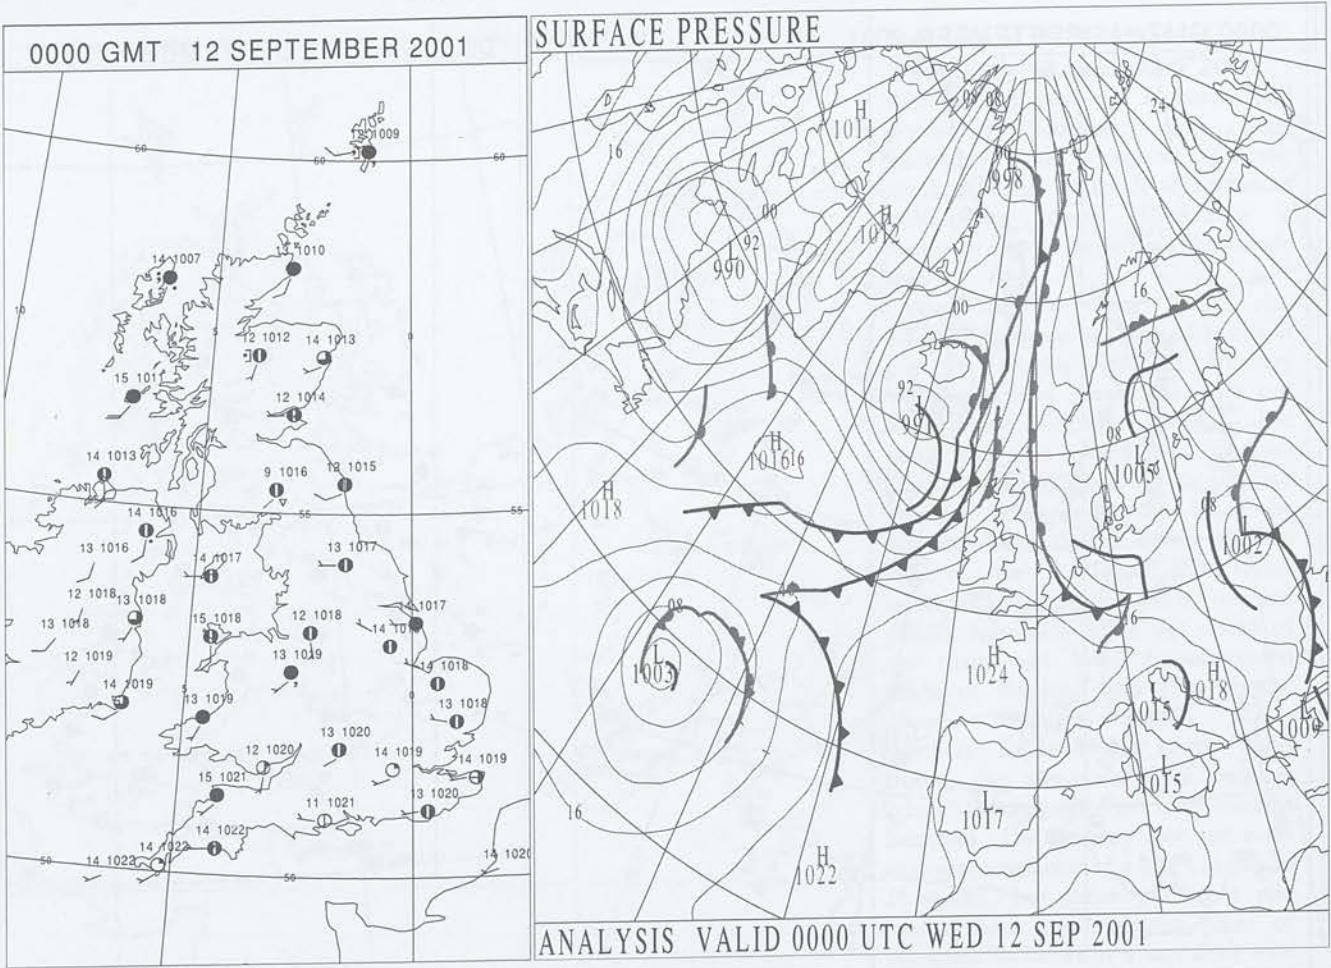 0000 GMT 12 SEPTEMBER 2001
1009
60
60
60
14 1007
1010
10
5
0
12 1012
14 1013
15 1011
12 1014
14 1013
9 1016
13 1015
55
55
14 1016
13 1016
14 1017
13 1017
12 1018
13 1018
13 1018
15 1018
12 1018
1017
12 1019
13 1019
14 1018
14 1019
5
13 1019
0
13 1018
12 1020
13 1020
14 1019
14 1019
15 1021
11 1021
13 1020
14 1022
50
14 1022
14 1022
50
14 1020
SURFACE PRESSURE
16
H
1011
08
08
24
998
00
H
1012
92
L
990
00
16
92
L
H
1016
16
08
L
1005
H
1018
08
L
1002
08
16
L
1003
H
1024
H
1018
L
1015
L
1009
L
1015
16
L
1017
H
1022
ANALYSIS VALID 0000 UTC WED 12 SEP 2001